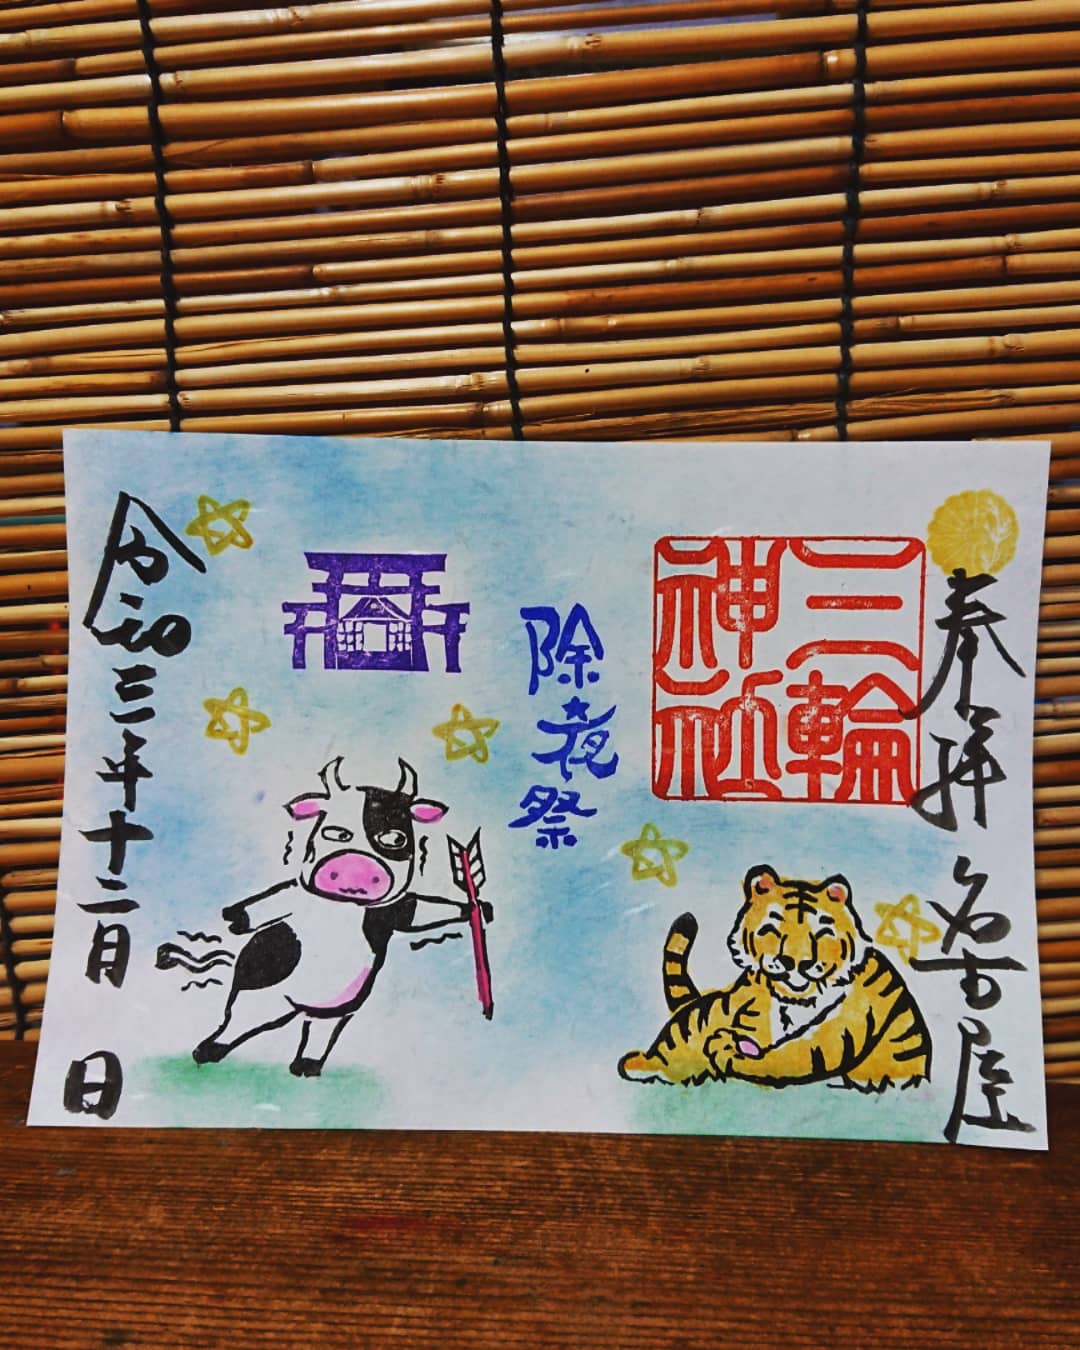 奉拝 名古屋
三輪神社
除夜祭
令和三年十二月 日